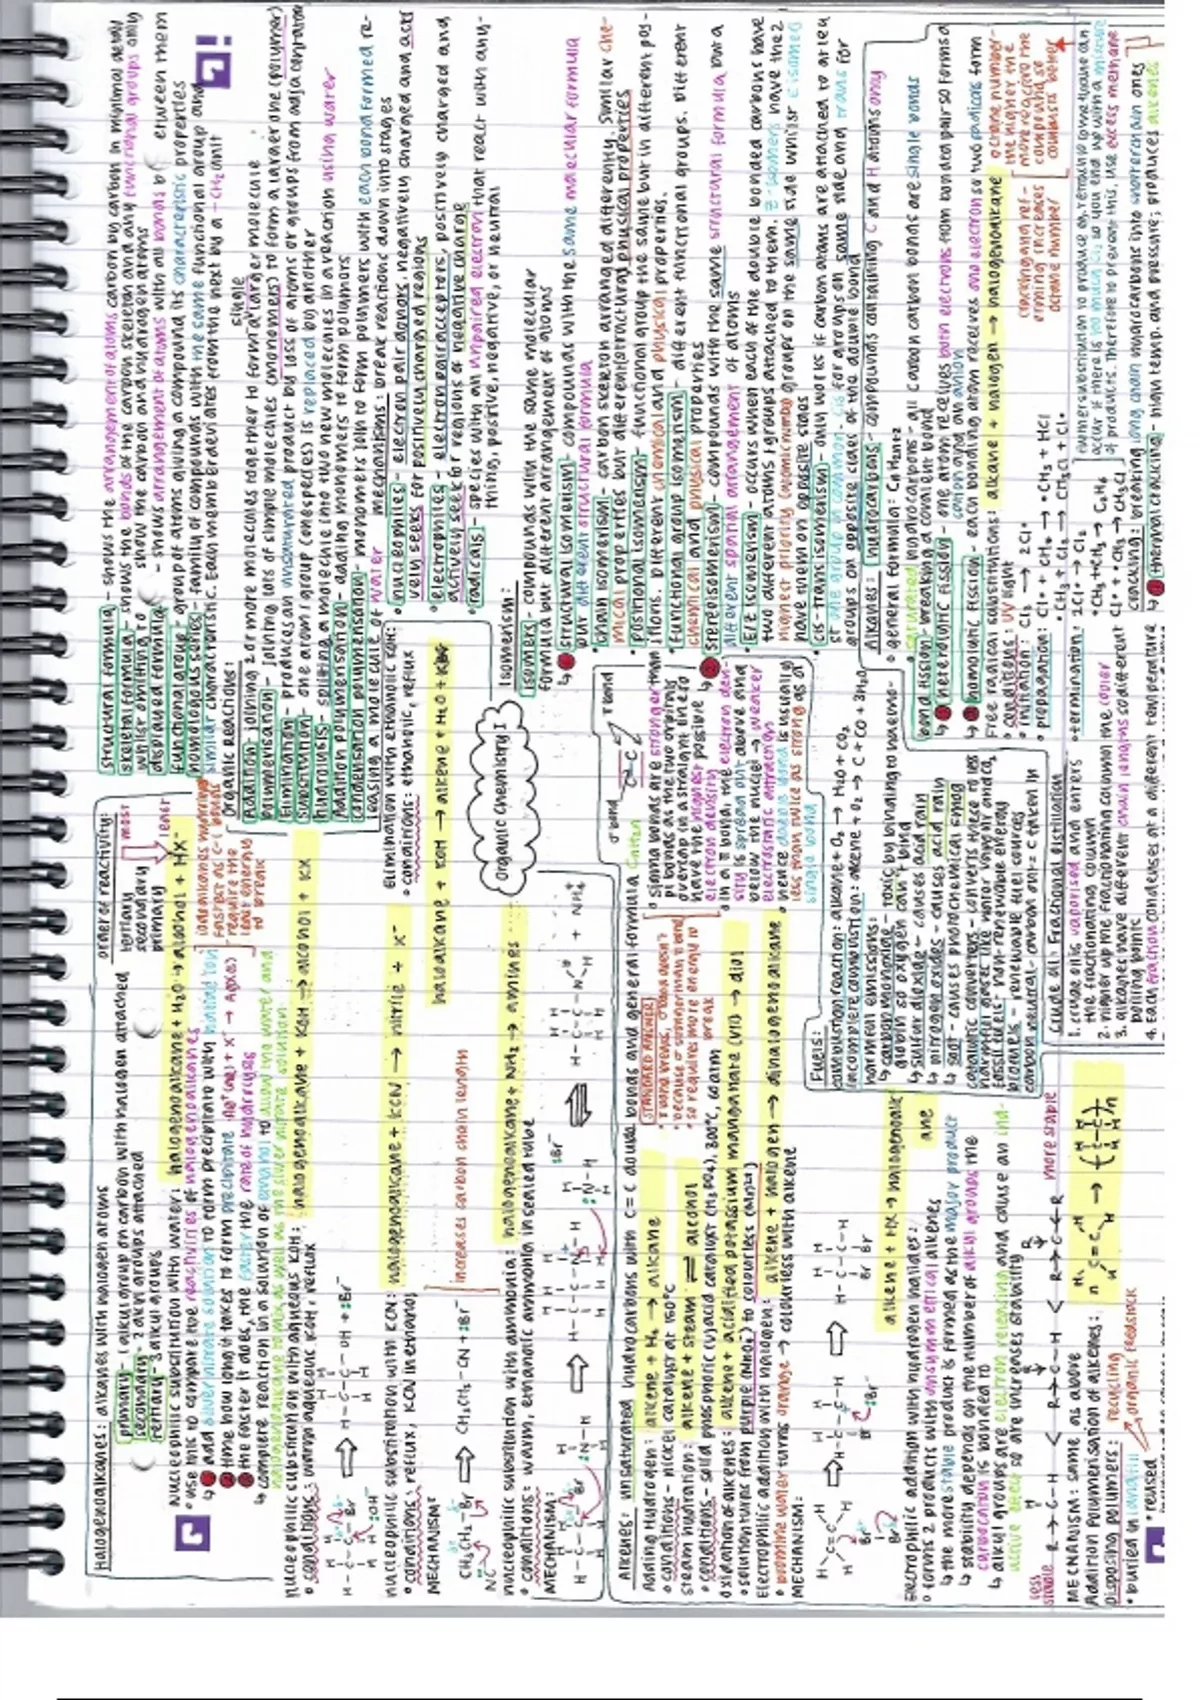 Halogenoalkanes: alkanes with halogen atoms
primary - 1 alkyl group on carbon with halogen attached
secondary - 2 alkyl groups attached
tertiary - 3 alkyl groups
order of reactivity:
tertiary most
secondary
primary least
Nucleophilic substitution with water: halogenoalkane + H₂O → alcohol + HX
• use this to compare the reactivities of halogenoalkanes
↳ add silver nitrate solution to form precipitate with halide ion
time how long it takes to form precipitate Ag⁺(aq) + X⁻ → AgX(s)
the faster it does, the faster the rate of hydrolysis
nucleophilic substitution with aqueous KOH: halogenoalkane + KOH → alcohol + KX
• conditions: warm aqueous KOH, reflux
nucleophilic substitution with KCN: halogenoalkane + KCN → nitrile + X⁻
• conditions: reflux, KCN in ethanol
increases carbon chain length
MECHANISM:
nucleophilic substitution with ammonia: halogenoalkane + NH₃ → amines
• conditions: warm, ethanolic ammonia in sealed tube
MECHANISM:
Elimination with ethanolic KOH:
• conditions: ethanolic, reflux
halogenoalkane + KOH → alkene + H₂O + KX
Organic Chemistry I
structural formula - shows the arrangement of atoms carbon by carbon in minimal detail
skeletal formula - shows the bonds of the carbon skeleton and any functional groups only
whilst omitting to show the carbon and hydrogen atoms
displayed formula - shows arrangement of atoms with all bonds between them
functional group - group of atoms giving a compound its characteristic properties
homologous series - family of compounds with the same functional group and
similar characteristics. Each member varies from the next by a -CH₂ unit
Organic Reactions:
Addition - joining 2 or more molecules together to form a single larger molecule
polymerisation - joining lots of simple molecules (monomers) to form a large one (polymer)
Elimination - produces an unsaturated product by loss of atoms or groups from adja
substitution - one atom/group (one species) is replaced by another
hydrolysis - splitting a molecule into two new molecules in a reaction using water
Addition polymerisation - adding monomers to form polymers
condensation polymerisation - monomers join to form polymers with each bond formed re-
leasing a molecule of water
mechanisms: break reactions down into stages
• nucleophiles - electron pair donors, negatively charged and acti-
vely seek for positively charged regions
• electrophiles - electron pair acceptors, positively charged and
actively seek for regions of negative charge
• radicals - species with an unpaired electron that react with any-
thing, positive, negative, or neutral
Isomerism:
isomers - compounds with the same molecular
formula but different arrangement of atoms
↳ structural isomerism - compounds with the same molecular formula
but different structural formula
• chain isomerism - carbon skeleton arranged differently. Similar che-
mical properties but different (structural) physical properties
• positional isomerism - functional group the same but in different pos-
itions. Different chemical and physical properties.
• functional group isomerism - different functional groups. Different
chemical and physical properties
stereoisomerism - compounds with the same structural formula but a
different spatial arrangement of atoms
• E/Z isomerism - occurs when each of the double bonded carbons have
two different atoms/groups attached to them. Z isomers have the 2
highest priority (atomic number) groups on the same side whilst E isomers
have them on opposite sides
cis-trans isomerism - only works if carbon atoms are attached to at least
one group in common. cis for groups on same side and trans for
groups on opposite sides of the double bond
Alkenes: unsaturated hydrocarbons with C=C double bonds and general formula CnH2n
Adding Hydrogen: alkene + H₂ → alkane
• conditions - nickel catalyst at 150°C
steam hydration: alkene + steam ⇌ alcohol
• conditions - solid phosphoric (V) acid catalyst (H₃PO₄), 300°C, 60 atm
Oxidation of alkenes: alkene + acidified potassium manganate (VII) → diol
• solution turns from purple (MnO₄⁻) to colourless (Mn2+)
Electrophilic addition with halogen: alkene + halogen → dihalogenoalkane
• bromine water turns orange → colourless with alkene
MECHANISM:
Electrophilic addition with hydrogen halides: alkene + HX → halogenoalkane
• forms 2 products with unsymmetrical alkenes
↳ the more stable product is formed as the major product
↳ stability depends on the number of alkyl groups the
carbocation is bonded to
↳ alkyl groups are electron releasing and cause an ind-
uctive effect so are increases stability
less stable
more stable
MECHANISM: same as above
Addition Polymerisation of alkenes:
Disposing polymers:
• buried in landfill
• reused
recycling
organic feedstock
σ bond
π bond
• sigma bonds are stronger than
pi bonds as the two orbitals
overlap in a straight line to
have the highest possible
electron density
in a π bond, the electron den-
sity is spread out above and
below the nuclei → weaker
electrostatic attraction
• hence double bond is usually
less than twice as strong as a
single bond
Fuels:
combustion reaction: alkane + O₂ → H₂O + CO₂
incomplete combustion: alkane + O₂ → C + CO + 3H₂O
harmful emissions:
↳ carbon monoxide - toxic by binding to haemo-
globin so oxygen can't bind
↳ sulfur dioxide - causes acid rain
↳ nitrogen oxides - causes acid rain
↳ soot - causes photochemical smog
catalytic converters - converts these to less
harmful gases like water vapour and CO₂
fossil fuels - non-renewable energy
biofuels - renewable fuel sources
carbon neutral - carbon out = carbon taken in
Crude oil: Fractional distillation
1. crude oil is vaporised and enters
the fractionating column
2. higher up the fractionating column the cooler
3. alkanes have different chain lengths so different
boiling points
4. Each fraction condenses at a different temperature
Alkanes: hydrocarbons - compounds containing C and H atoms only
• general formula: CnH2n+2
• saturated hydrocarbons - all carbon carbon bonds are single bonds
bond fission - breaking a covalent bond
heterolytic fission - one atom receives both electrons from bonded pair so forms a
cation and an anion
homolytic fission - each bonding atom receives one electron so two radicals form
Free radical substitution: alkane + halogen → halogenoalkane
• conditions: UV light
• initiation: Cl₂ → 2Cl•
• propagation: Cl• + CH₄ → •CH₃ + HCl
•CH₃ + Cl₂ → CH₃Cl + Cl•
• termination: 2Cl• → Cl₂
•CH₃ + •CH₃ → C₂H₆
Cl• + •CH₃ → CH₃Cl
cracking: breaking long chain hydrocarbons into shorter chain ones
↳ thermal cracking - high temp. and pressure; produces alkenes